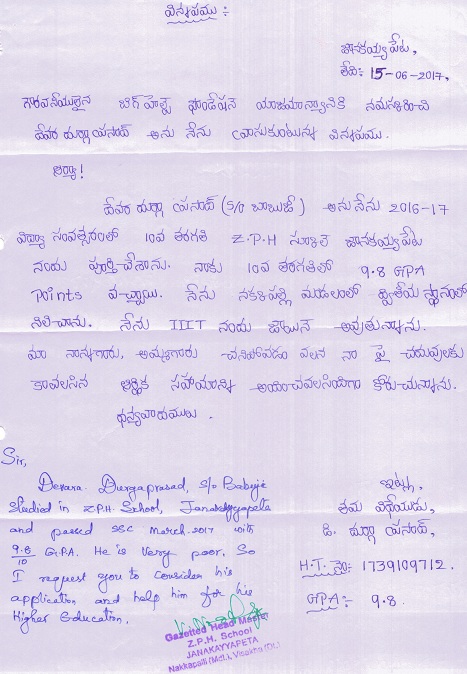 విన్నపము :
జానకయ్యపేట,
తేది: 15-06-2017,
గౌరవనీయులైన బిగ్ హెల్ప్ ఫౌండేషన్ యాజమాన్యానికి నమస్కరించి
దేవర దుర్గా ప్రసాద్ అను నేను వ్రాసుకుంటున్న విన్నపము.
అయ్యా!
దేవర దుర్గా ప్రసాద్ (S/o బాబుజీ) అను నేను 2016-17
విద్యా సంవత్సరంలో 10వ తరగతి Z.P.H స్కూల్ జానకయ్యపేట
నందు పూర్తిచేశాను. నాకు 10వ తరగతిలో 9.8 GPA
Points వచ్చాయి. నేను నక్కపల్లి మండలంలో ద్వితీయ స్థానంలో
నిలిచాను. నేను IIIT నందు జాయిన్ అవుతున్నాను.
మా నాన్నగారు, అమ్మగారు చనిపోవడం వలన నా పై చదువులకు
కావలసిన ఆర్థిక సహాయాన్ని అందించవలసిందిగా కోరుచున్నాను.
ధన్యవాదములు.
Sir,
Devara. Durgaprasad, S/o Babujie
Studied in Z.P.H-School, Janakayyapeta
and passed SSC March.2017 with
9.8/10 G.P.A. He is very poor. So
I request you to consider his
application and help him for his
Higher Education.
ఇట్లు,
తమ విధేయుడు,
దే. దుర్గా ప్రసాద్,
H.T. నెం: 1739109712.
GPA:- 9.8.
Gazetted Head Master
Z.P.H. School
JANAKAYYAPETA
Nakkapalli (Mdl.), Visakha (Dt.)